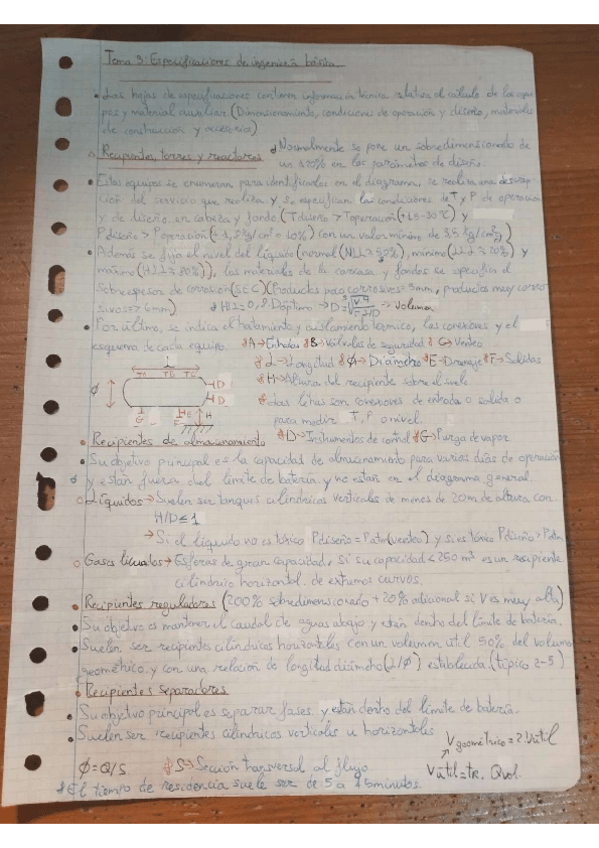 Tema 3: Especificaciones de ingeniería básica
• Las hojas de especificaciones contienen información técnica relativa al cálculo de los equi
pos y material auxiliar (Dimensionamiento, condiciones de operación y diseño, materiales
de construcción y accesorios)
Recipientes torres y reactores
Normalmente se pone un sobredimensionado de
un ±20% en los parámetros de diseño.
• Estos equipos se enumeran para identificarlos en el diagrama, se realiza una descrip-
ción del servicio que realiza y se especifican las condiciones de T y P de operación
y de diseño en cabeza y fondo (T diseño > T operación (+15-30°C) y
P diseño > P operación (+ 1,5 kg/cm² o 10%) con un valor mínimo de 3,5 kg/cm²)
• Además se fija el nivel del líquido (normal (NLL≥50%), mínimo (LLL≥20%) y
máximo (HLL≥80%)), los materiales de la carcasa y fondos se especifica el
sobreespesor de corrosión (SEC) (Productos poco corrosivos=3mm, productos muy corro
sivos>6mm)
D óptimo → D= → Volumen
• Por último, se indica el tratamiento y aislamiento térmico, las conexiones y el
esquema de cada equipo.
A→Entradas B→Válvulas de seguridad C→Venteo
L→Longitud Ø→Diámetro E→Drenaje F→Salidas
H→Altura del recipiente sobre el suelo
Las líneas son conexiones de entrada o salida o
para medir T, P o nivel.
D→Instrumentos de control G→Purga de vapor
Ø
D
D
G
E
H
• Recipientes de almacenamiento
• Su objetivo principal es la capacidad de almacenamiento para varios días de operación
y están fuera del límite de batería y no están en el diagrama general.
○ Líquidos → Suelen ser tanques cilíndricos verticales de menos de 20m de altura con
H/D≤1
→ Si el líquido no es tóxico P diseño = Patm (venteo) y si es tóxico P diseño > Patm
○ Gases licuados → Esferas de gran capacidad. Si su capacidad < 250 m³ es un recipiente
cilíndrico horizontal de extremos curvos.
• Recipientes reguladores (200% sobredimensionado + 20% adicional si V es muy alta)
• Su objetivo es mantener el caudal de aguas abajo y están dentro del límite de batería.
• Suelen ser recipientes cilíndricos horizontales con un volumen útil 50% del volumen
geométrico y con una relación de longitud diámetro (L/Ø) establecida (típico 2-5)
• Recipientes Separadores
• Su objetivo principal es separar fases y están dentro del límite de batería.
• Suelen ser recipientes cilíndricos verticales u horizontales
V geométrico = 2 Vútil
Ø=Q/S S→Sección transversal al flujo
Vútil=tr. Qvol.
El tiempo de residencia suele ser de 5 a 15 minutos.